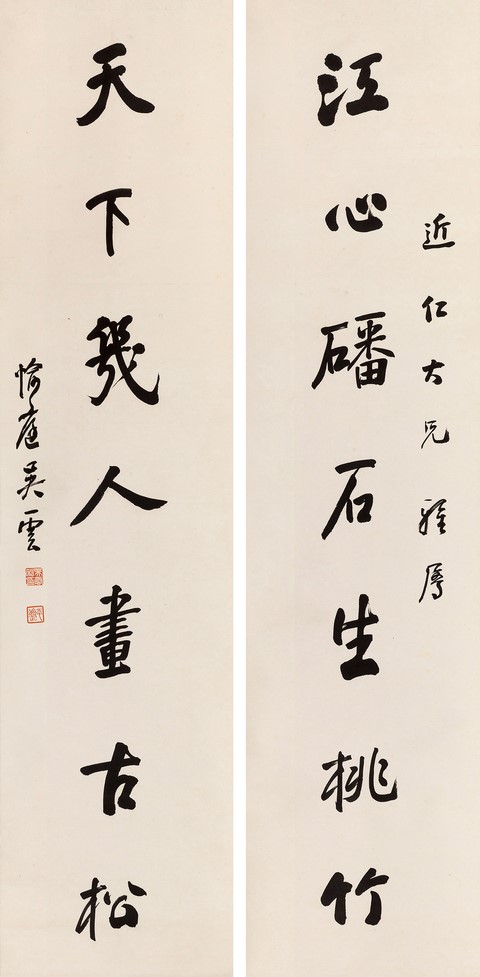 近仁大兄雅属
江心磻石生桃竹
天下幾人畫古松
愉庭吳雲